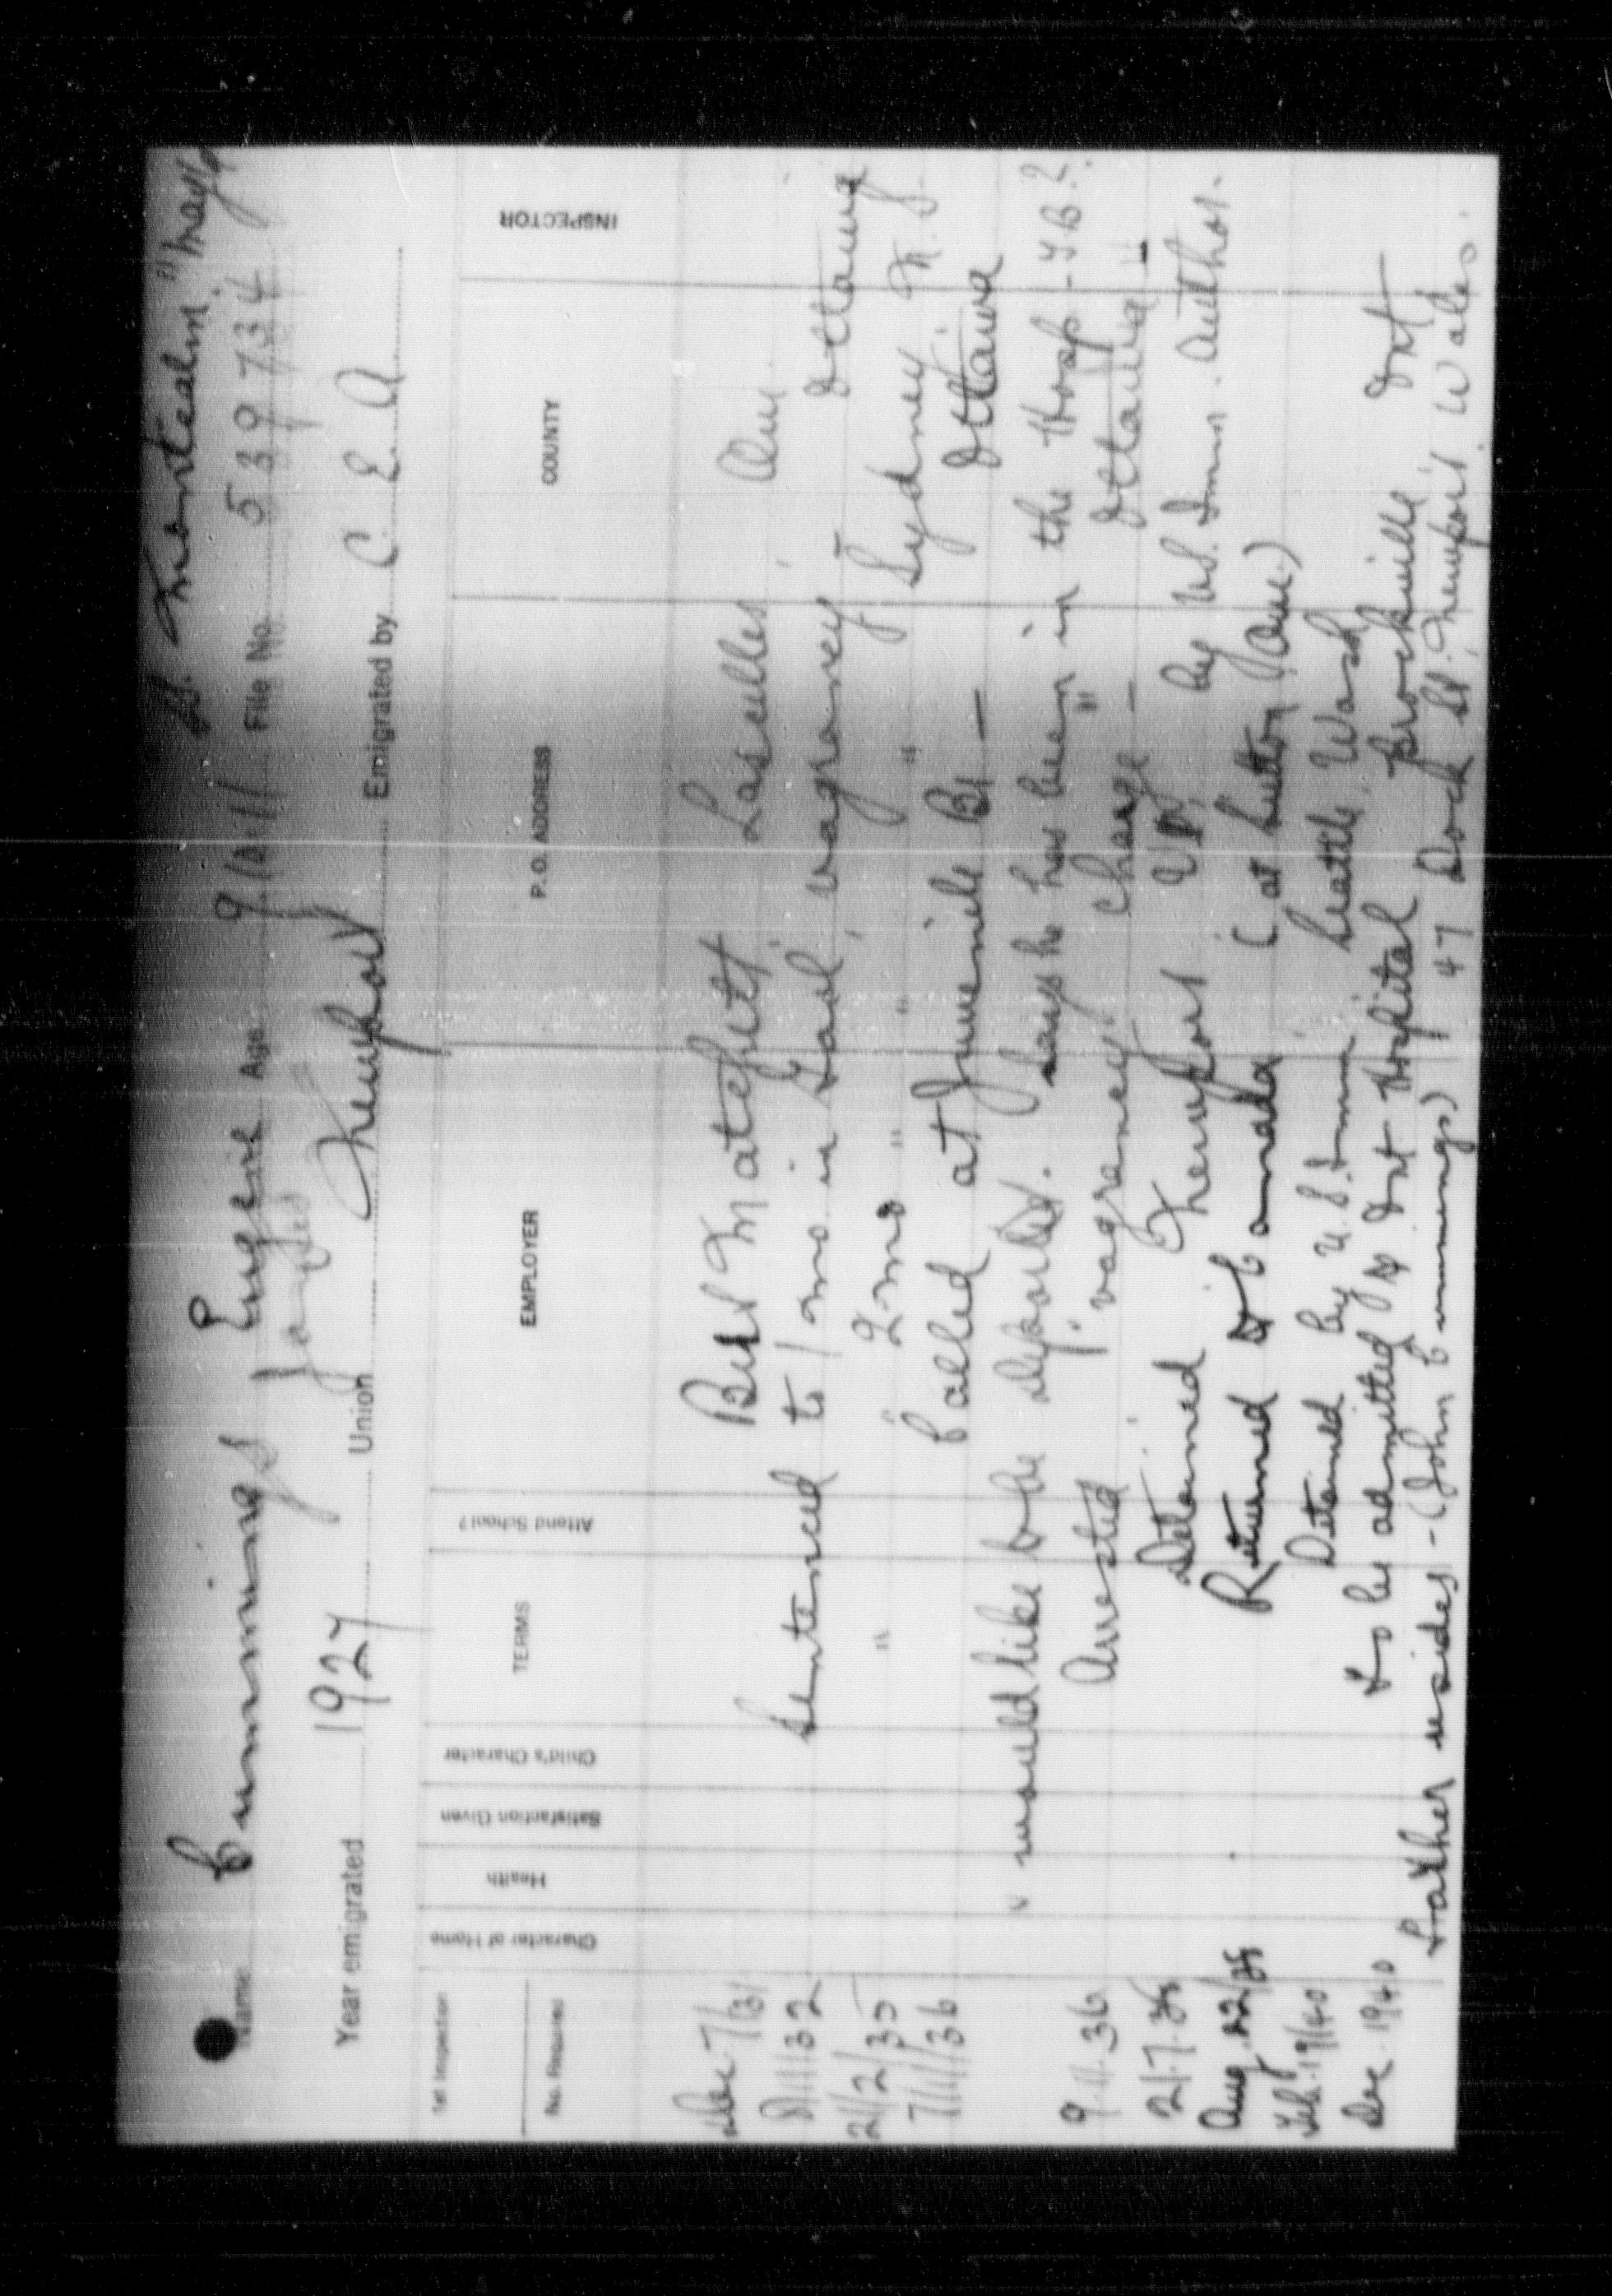 S.S. Montcalm "May 6
Name Cummings Eugene Age 9/10/11 File No. 539734
James
Year emigrated 1927 Union Newport Emigrated by C. E. A.
1st Inspection Character of Home Health Satisfaction Given Child's Character TERMS Attend School? EMPLOYER P.O. ADDRESS COUNTY INSPECTOR
No. Required
Dec 7/31 Bert Matchett Lascelles Que.
8/11/32 Sentenced to 1 mo in Gaol, vagrancy Ottawa
21/2/35 " 2 mo " " " Sydney N. S.
7/11/36 Called at Juvenile Br — Ottawa
would like to be deported. Says he has been in the Hosp - T B ?
9.11.36 Arrested vagrancy charge — Ottawa
21.7.38 Detained Newport Vt, by U.S. Imm. Author.
Aug 22/38 Returned to Canada (at Sutton Que.)
Feb. 19/40 Detained by U.S. Imm Seattle, Wash
Dec 1940 to be admitted to Ont Hospital Brockville Ont
Father resides - (John Cummings) 47 Dock St. Newport Wales.